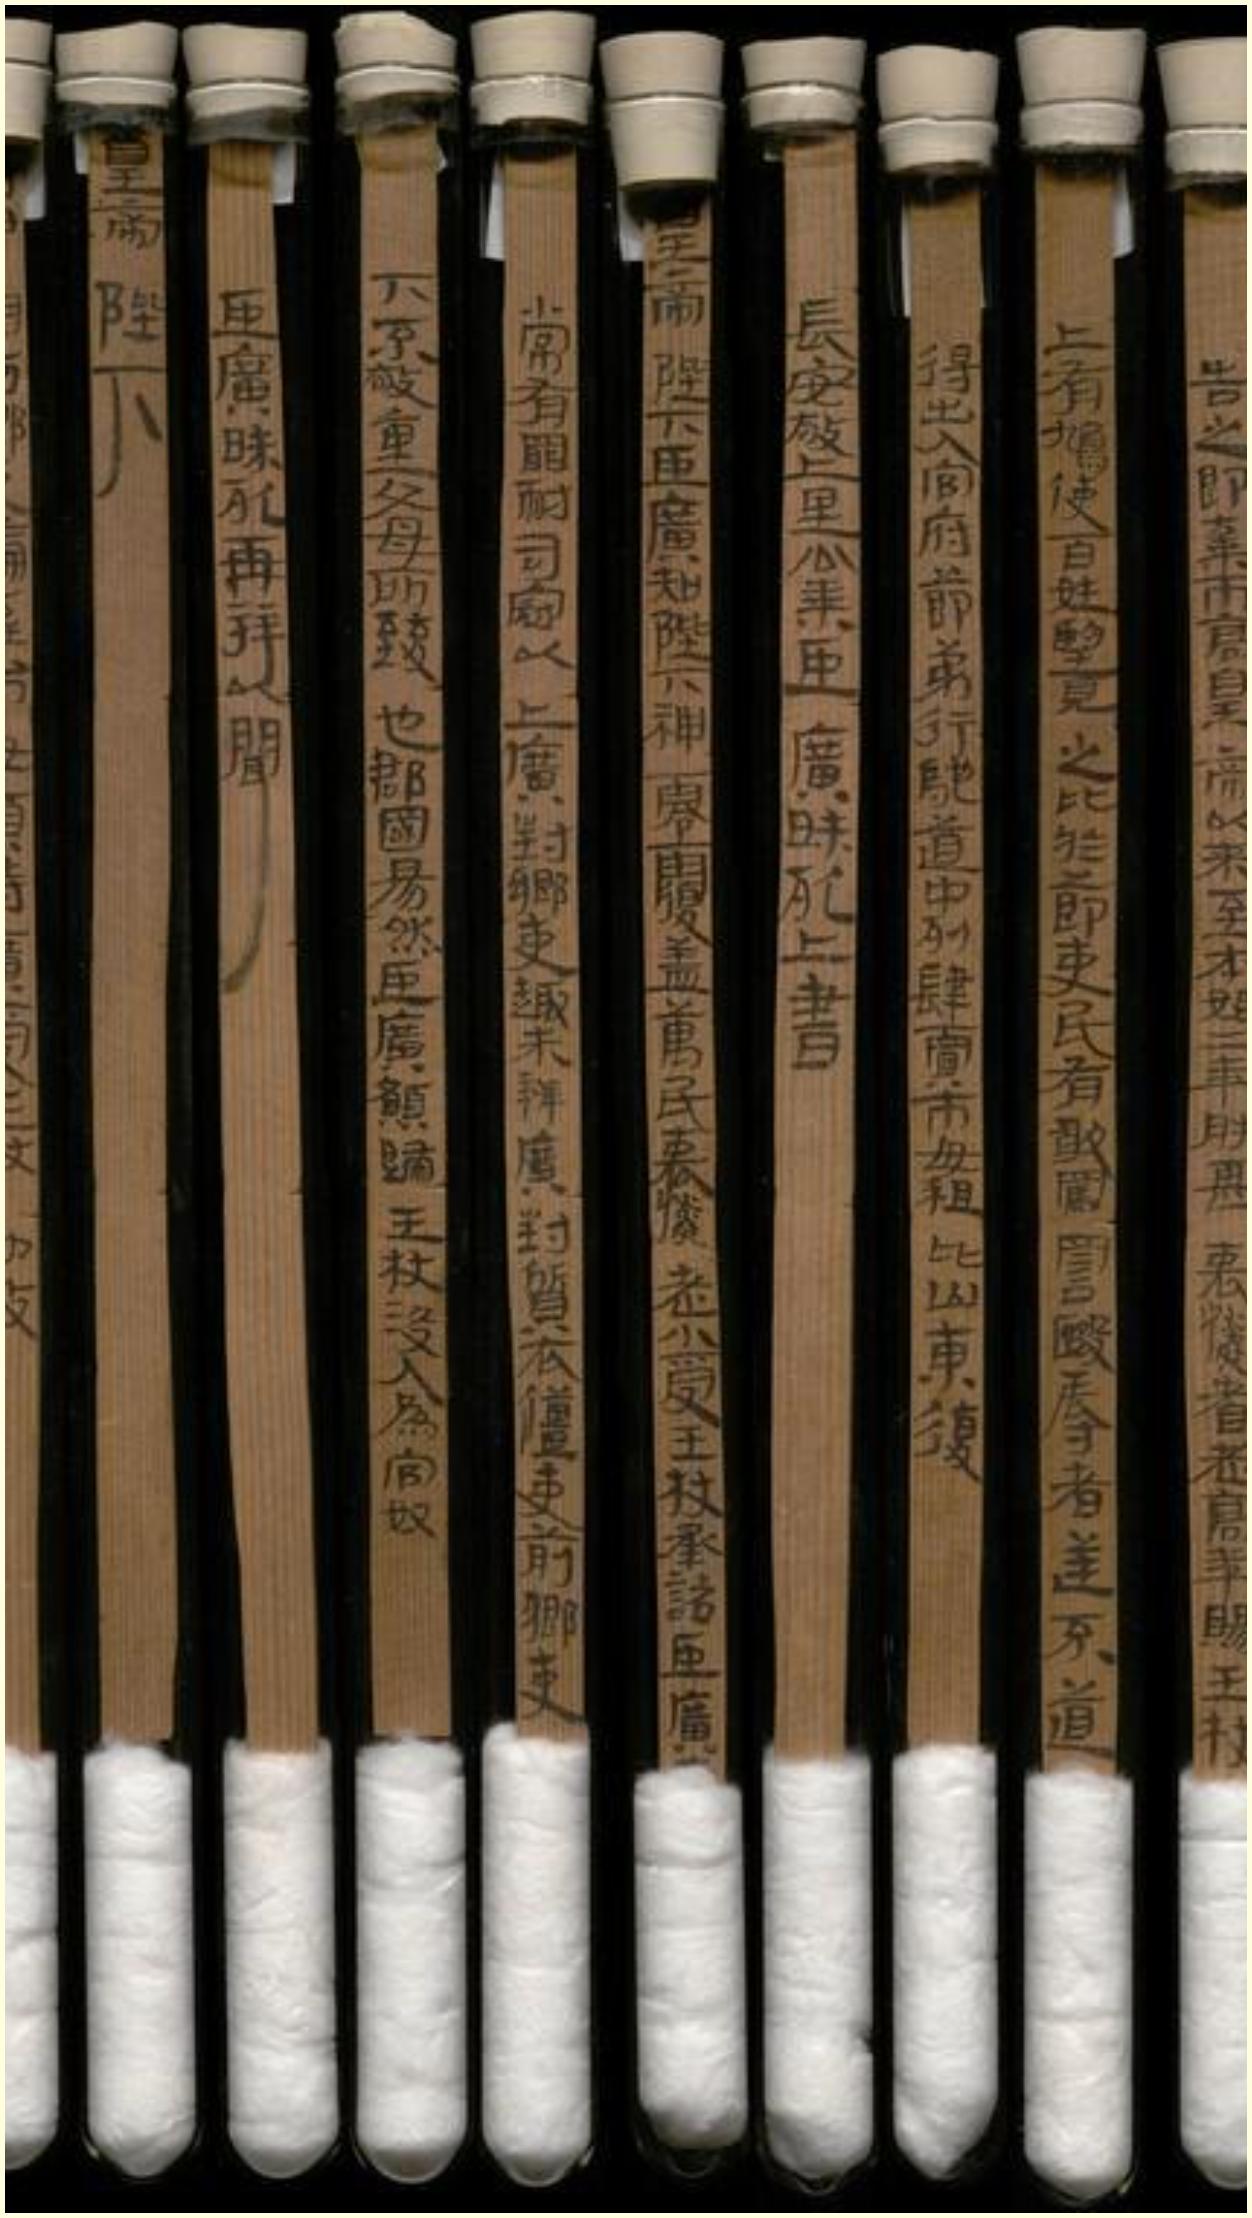 告之即棄市高皇帝以來至本始二年朕甚哀憐耆老高年賜王杖
上有鳩使百姓望見之比於節吏民有敢罵詈毆辱者逆不道
得出入官府節弟行馳道中列肆賈市毋租比山東復
長安敬上里公乘臣廣昧死上書
皇帝陛下臣廣知陛下神零覆蓋萬民哀憐老小受王杖承詔臣廣
常有罪耐司寇以上廣對鄉吏趣未辨廣對質衣僵吏前鄉吏
下不敬重父母所致也郡國易然臣廣願歸王杖沒入為官奴
臣廣昧死再拜以聞
皇帝陛下